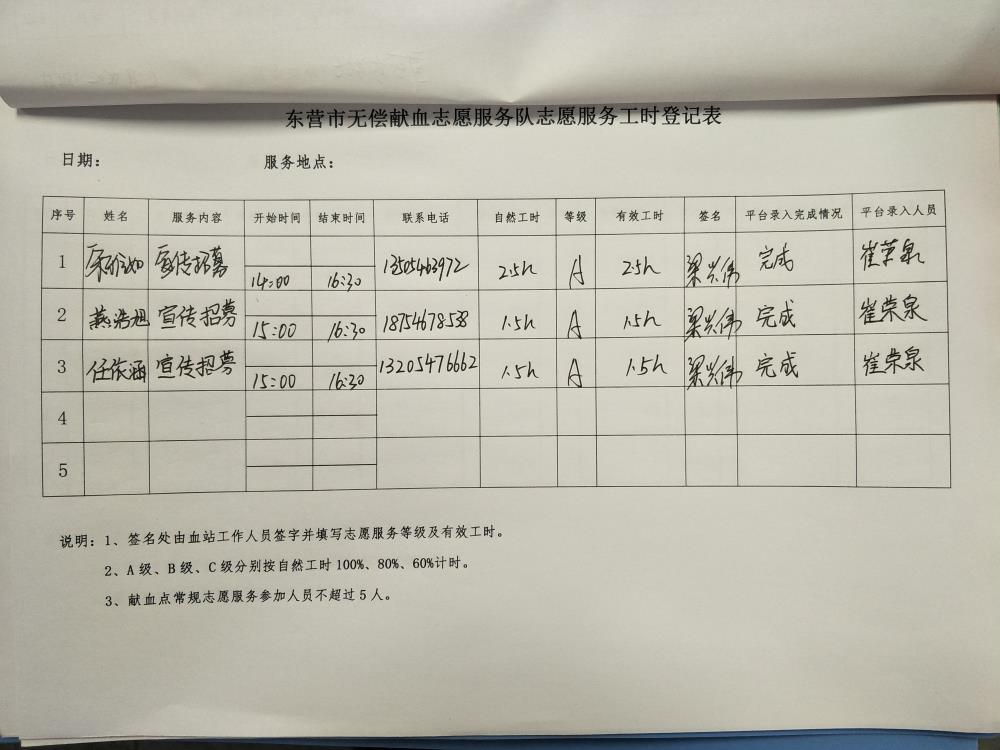 东营市无偿献血志愿服务队志愿服务工时登记表
日期： 服务地点：
序号 姓名 服务内容 开始时间 结束时间 联系电话 自然工时 等级 有效工时 签名 平台录入完成情况 平台录入人员
1 宣传招募 14:00 16:30 2.5h A 2.5h 梁兴伟 完成 崔荣泉
2 燕浩旭 宣传招募 15:00 16:30 18754678538 1.5h A 1.5h 梁兴伟 完成 崔荣泉
3 任依涵 宣传招募 15:00 16:30 13205476662 1.5h A 1.5h 梁兴伟 完成 崔荣泉
4
5
说明：1、签名处由血站工作人员签字并填写志愿服务等级及有效工时。
2、A 级、B 级、C 级分别按自然工时 100%、80%、60%计时。
3、献血点常规志愿服务参加人员不超过 5 人。